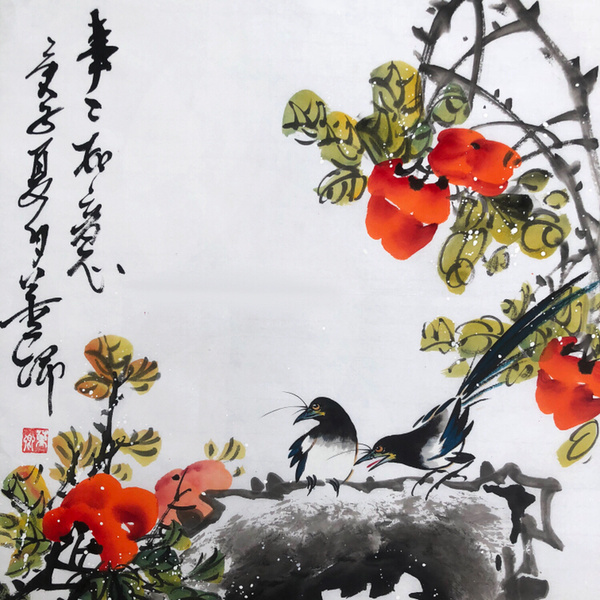 事〻如意
庚子夏月善